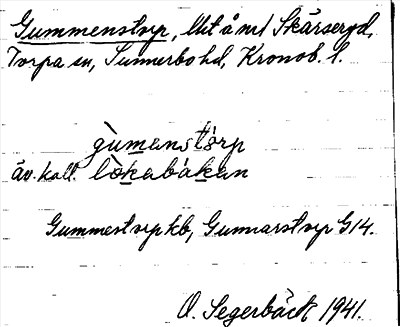 Gummenstorp, Utå md Skärseryd,
Torpa sn, Sunnerbo hd, Kronob. l.
gùmenstórp
äv. kall. lòkabákan
Gummestorp kb, Gunnarstorp G14.
O. Segerbäck 1941.